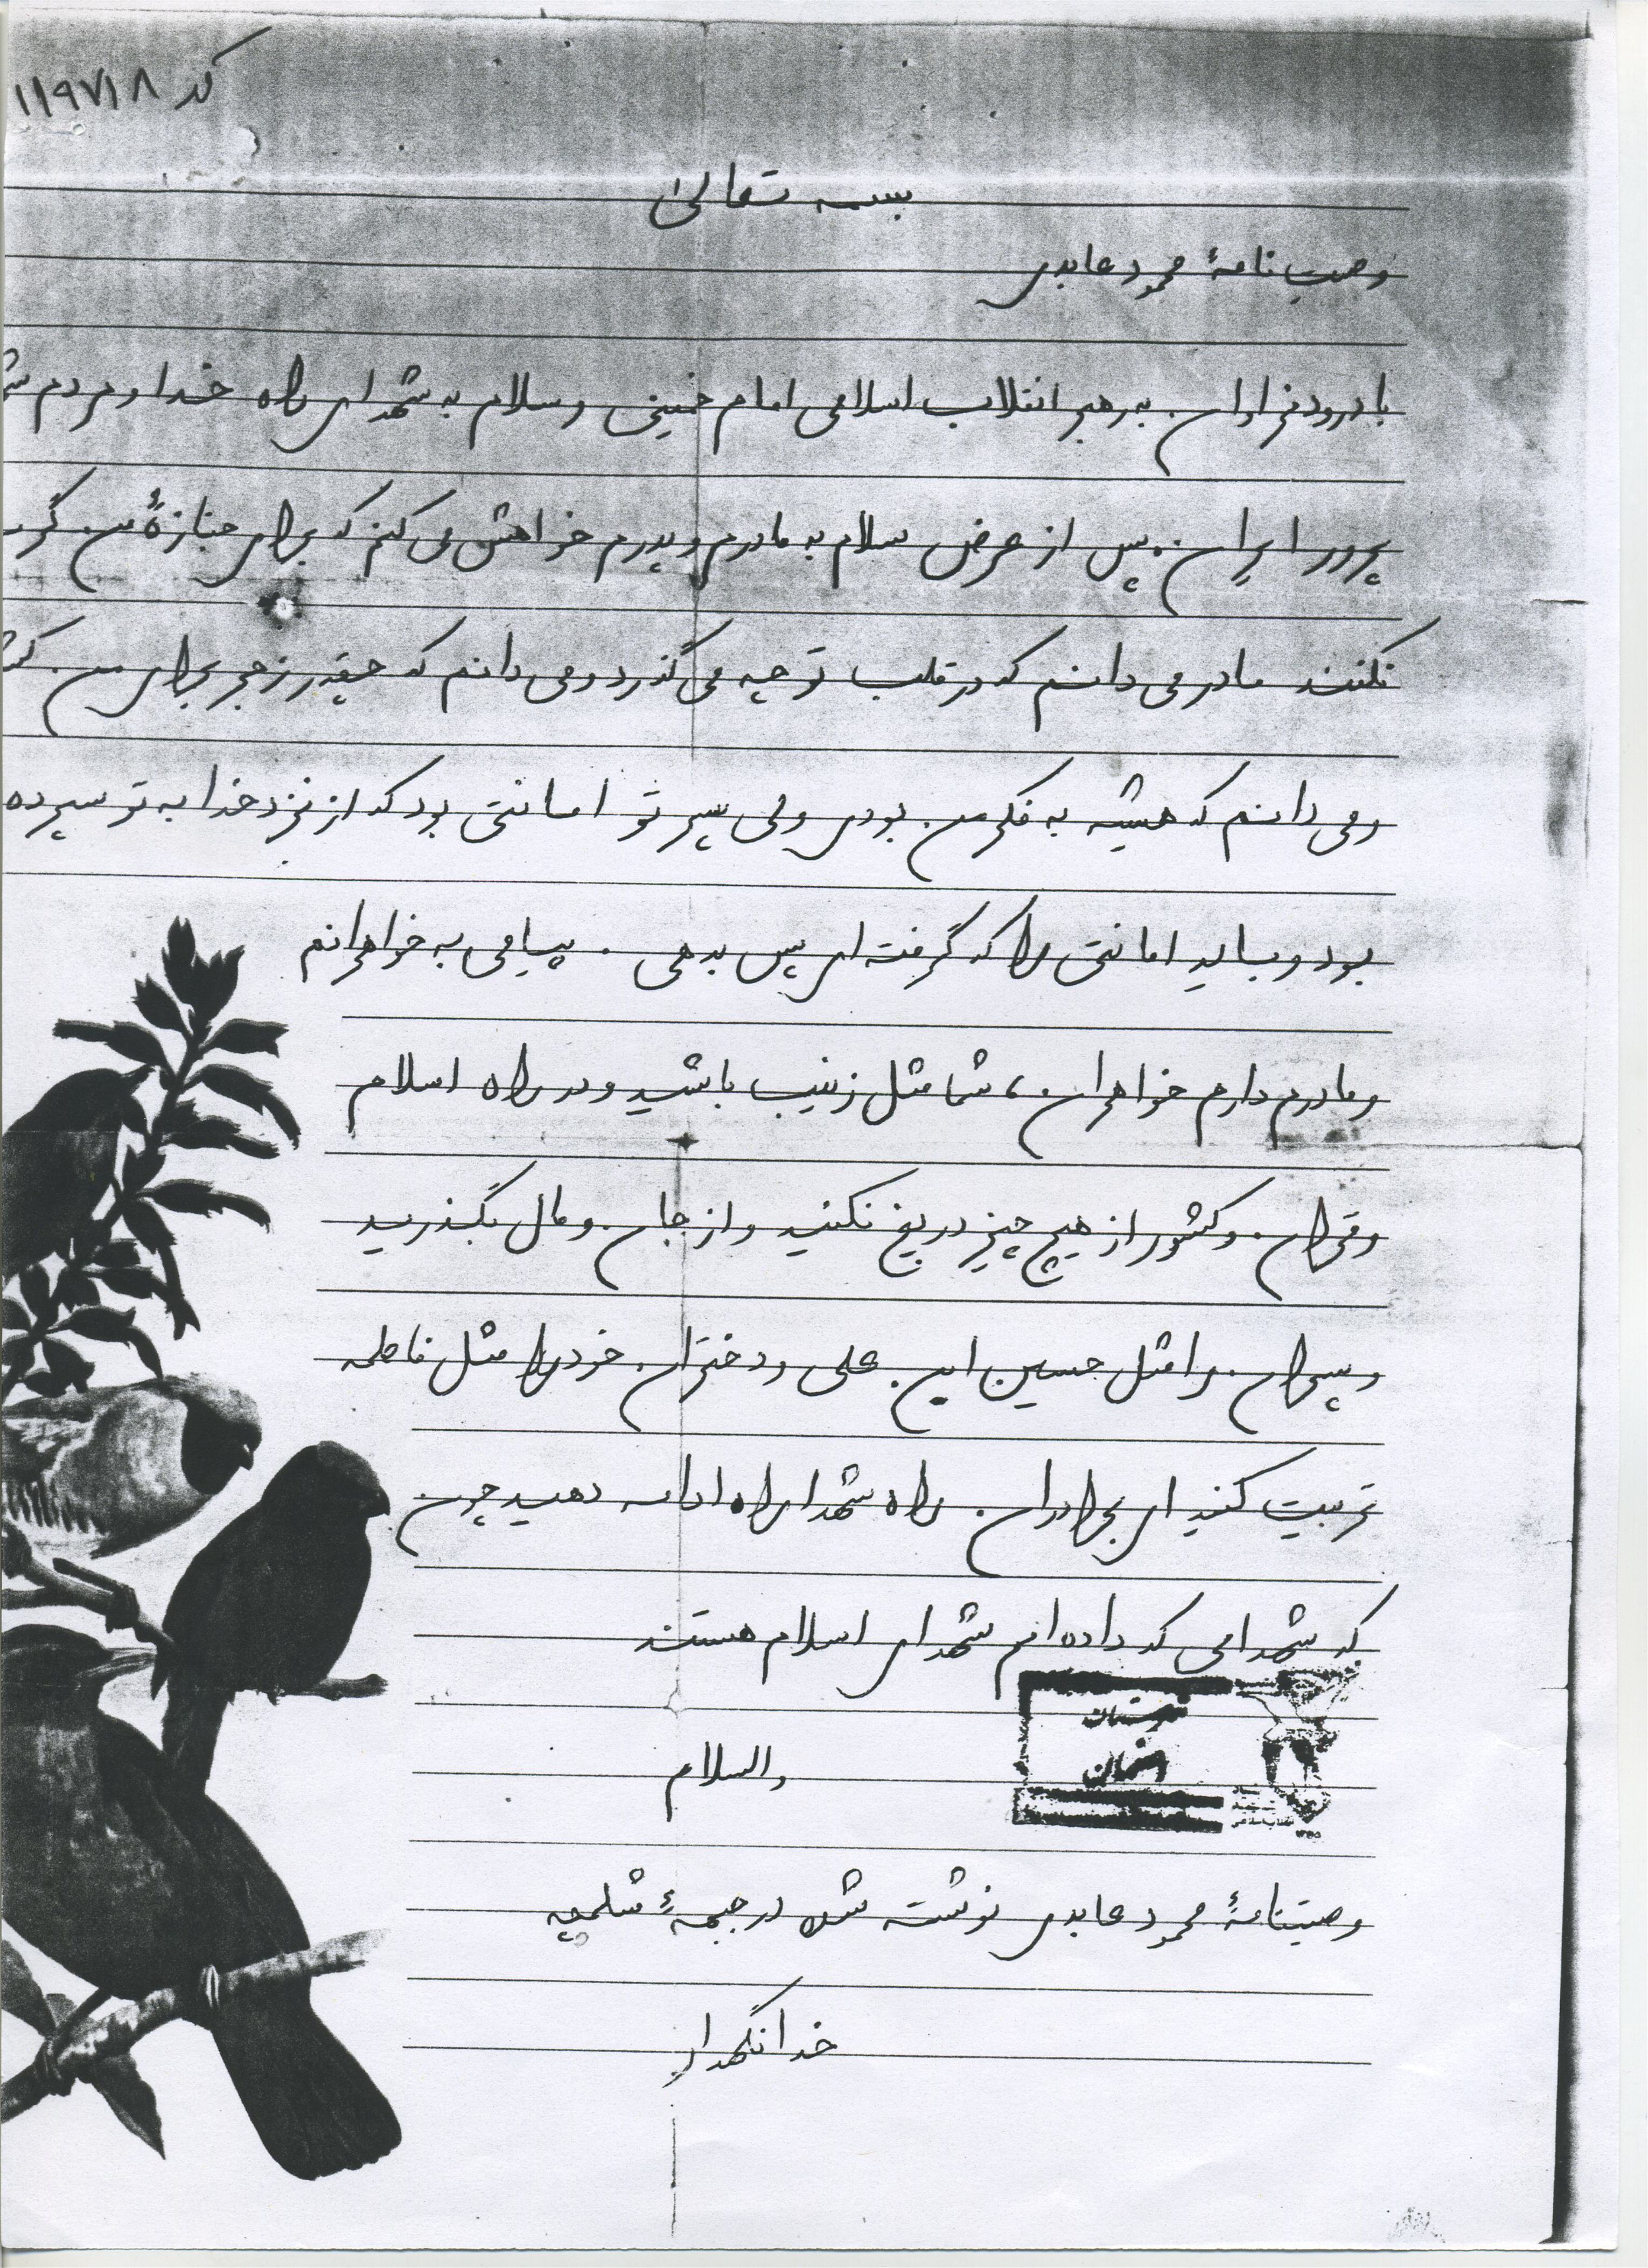 کد ۱۱۹۷۱۸
بسمه تعالی
وصیت نامهٔ محمود عابدی
با درود فراوان به رهبر انقلاب اسلامی امام خمینی و سلام به شهدای راه خدا و مردم
پرور ایران. پس از عرض سلام به مادرم و پدرم خواهش می کنم که برای جنازهٔ من
نکنند مادر می دانم که در قلب تو چه می گذرد و می دانم که چقدر زجر برای من
و می دانم که همیشه به فکر من بودی ولی پسر تو امانتی بود که از نزد خدا به تو سپرده
بود و باید امانتی را که گرفته ای پس بدهی . پیامی به خواهرانم
و مادرم دارم خواهران، شما مثل زینب باشید و در راه اسلام
و قران و کشور از هیچ چیز دریغ نکنید و از جان و مال بگذرید
و پسران را مثل حسین ابن علی و دختران خود را مثل فاطمه
تربیت کنید ای برادران راه شهدا را ادامه دهید چون
که شهدای که داده ایم شهدای اسلام هستند
والسلام
وصیتنامهٔ محمود عابدی نوشته شده در جبههٔ شلمچه
خدا نگهدار